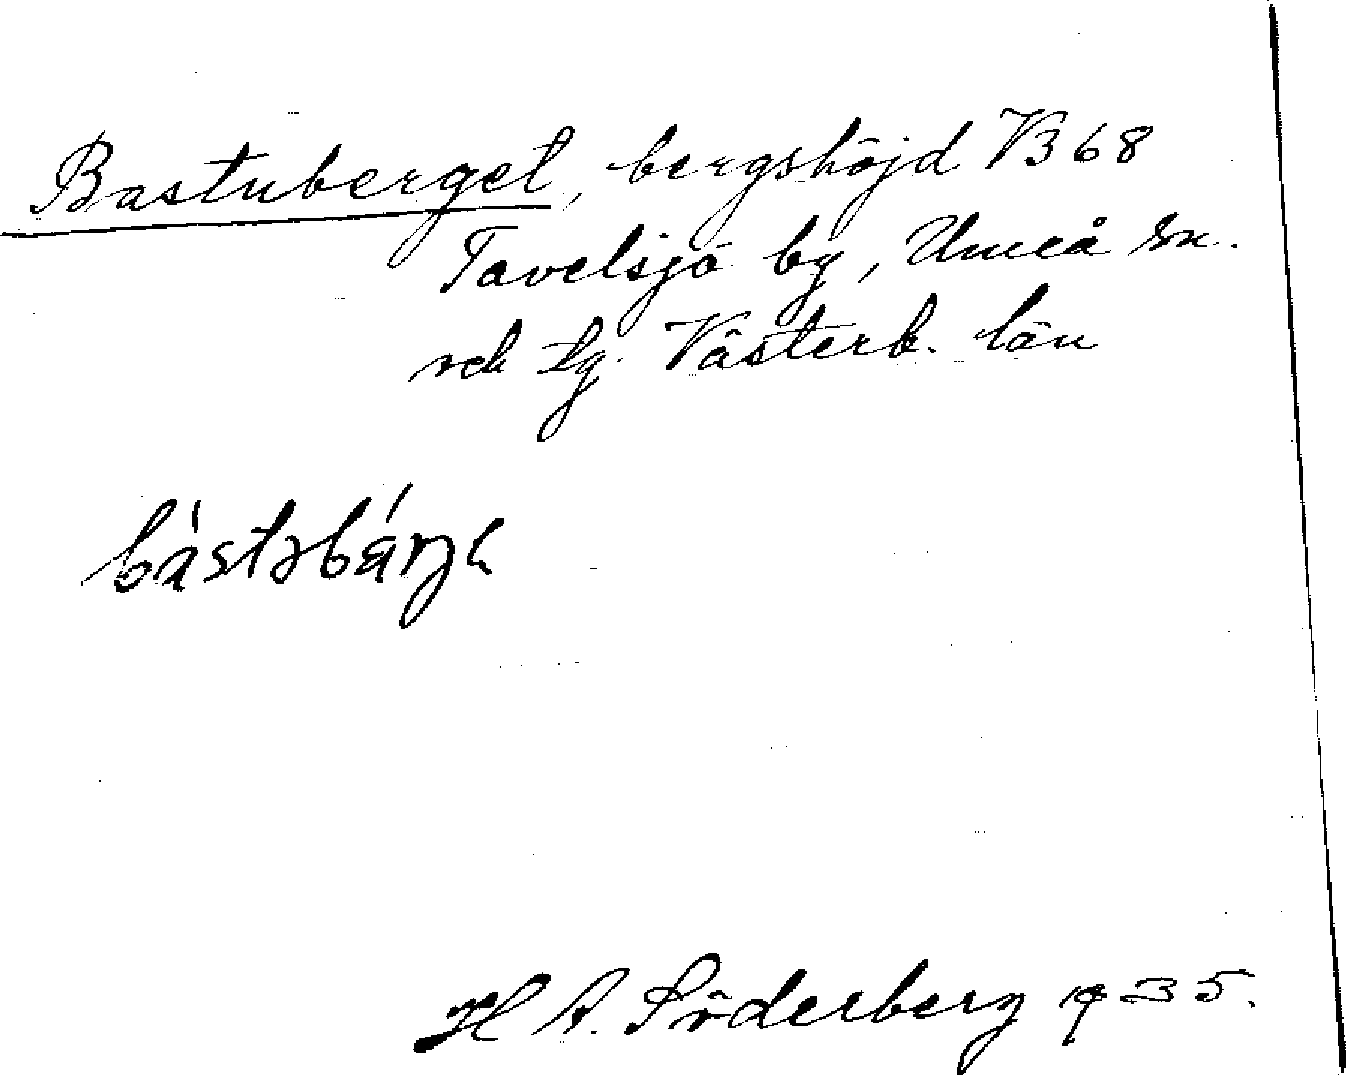 Bastuberget, bergshöjd VB 68
Tavelsjö by, Umeå sn.
och tg. Västerb. län
H A. Söderberg 1935.